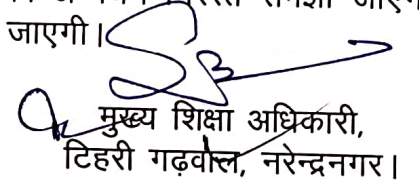 जाएगी।
मुख्य शिक्षा अधिकारी,
टिहरी गढ़वाल, नरेन्द्रनगर।